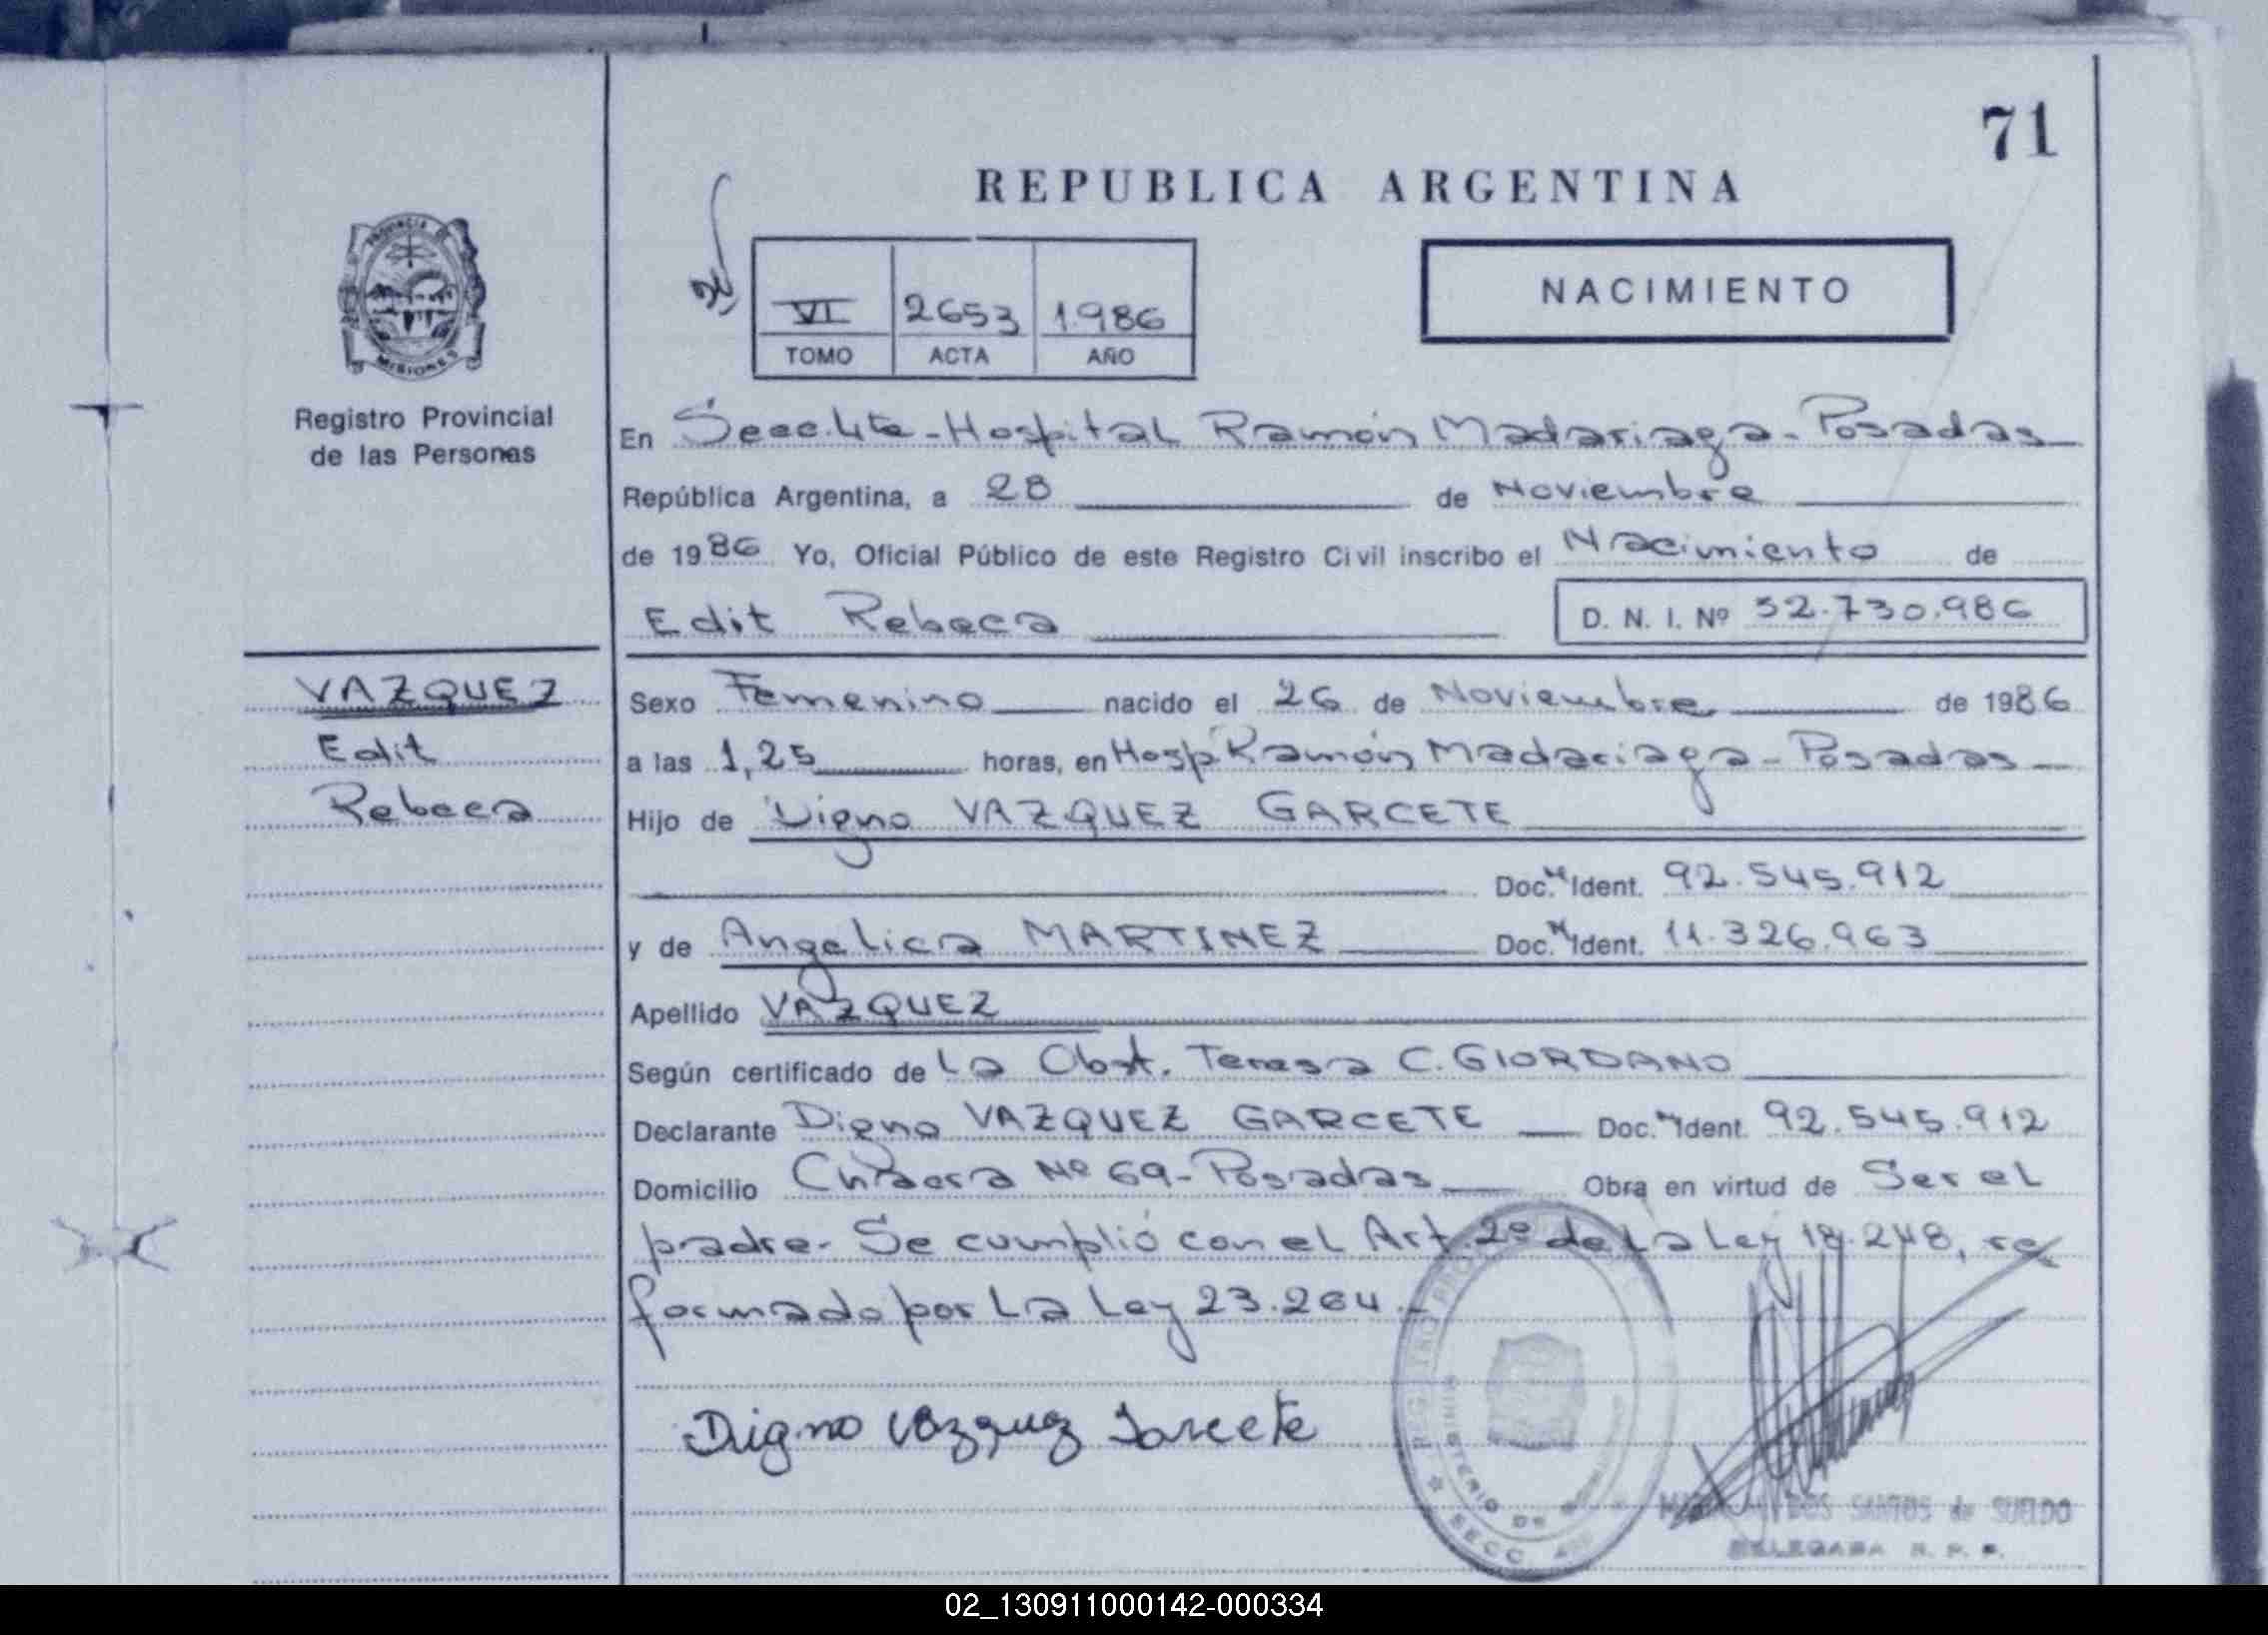 71
REPUBLICA ARGENTINA
VI 2653 1.986
TOMO ACTA AÑO
NACIMIENTO
PROVINCIA DE
MISIONES
Registro Provincial
de las Personas
En Secc. 4ta - Hospital Ramón Madariaga - Posadas
República Argentina, a 28 de Noviembre
de 1986 Yo, Oficial Público de este Registro Civil inscribo el Nacimiento de
Edit Rebeca D. N. I. Nº 32.730.986
VAZQUEZ
Edit
Rebeca
Sexo Femenino nacido el 26 de Noviembre de 1986
a las 1,25 horas, en Hosp Ramón Madariaga - Posadas
Hijo de Digno VAZQUEZ GARCETE
Doc. Ident. 92.545.912
y de Angelica MARTINEZ Doc. Ident. 11.326.963
Apellido VAZQUEZ
Según certificado de La Obst. Teresa C. GIORDANO
Declarante Digno VAZQUEZ GARCETE Doc. Ident. 92.545.912
Domicilio Chacra Nº 69 - Posadas Obra en virtud de Ser el
padre. Se cumplió con el Art. 2º de La Ley 18.248, re
formado por La Ley 23.264.-
Digno Vazquez Garcete
DOS SANTOS de SUELDO
DELEGADA R. P. P.
02_130911000142-000334